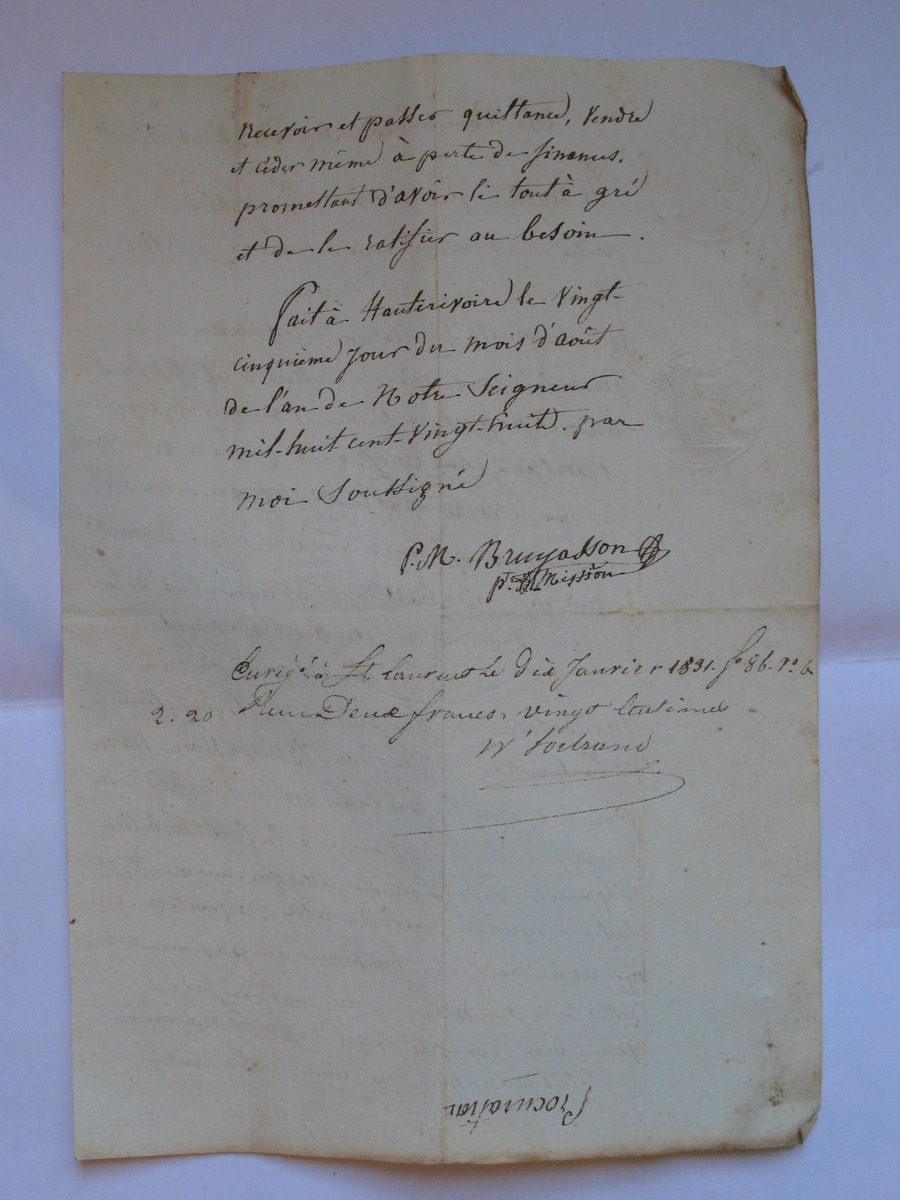 recevoir et passer quittance, vendre
et céder même à perte de finances.
promettant d'avoir le tout à gré
et de le ratifier au besoin.
Fait à Hauterivoire le vingt-
cinquième jour du mois d'août
de l'an de Notre Seigneur
mil-huit cent-vingt-huit. par
moi Soussigné
P. M. Bruyasson
ptre Missre
Enregé à St. Laurent le dix Janvier 1831. fo 86. ro 6
2. 20 Deux francs vingt Centimes
Procuration